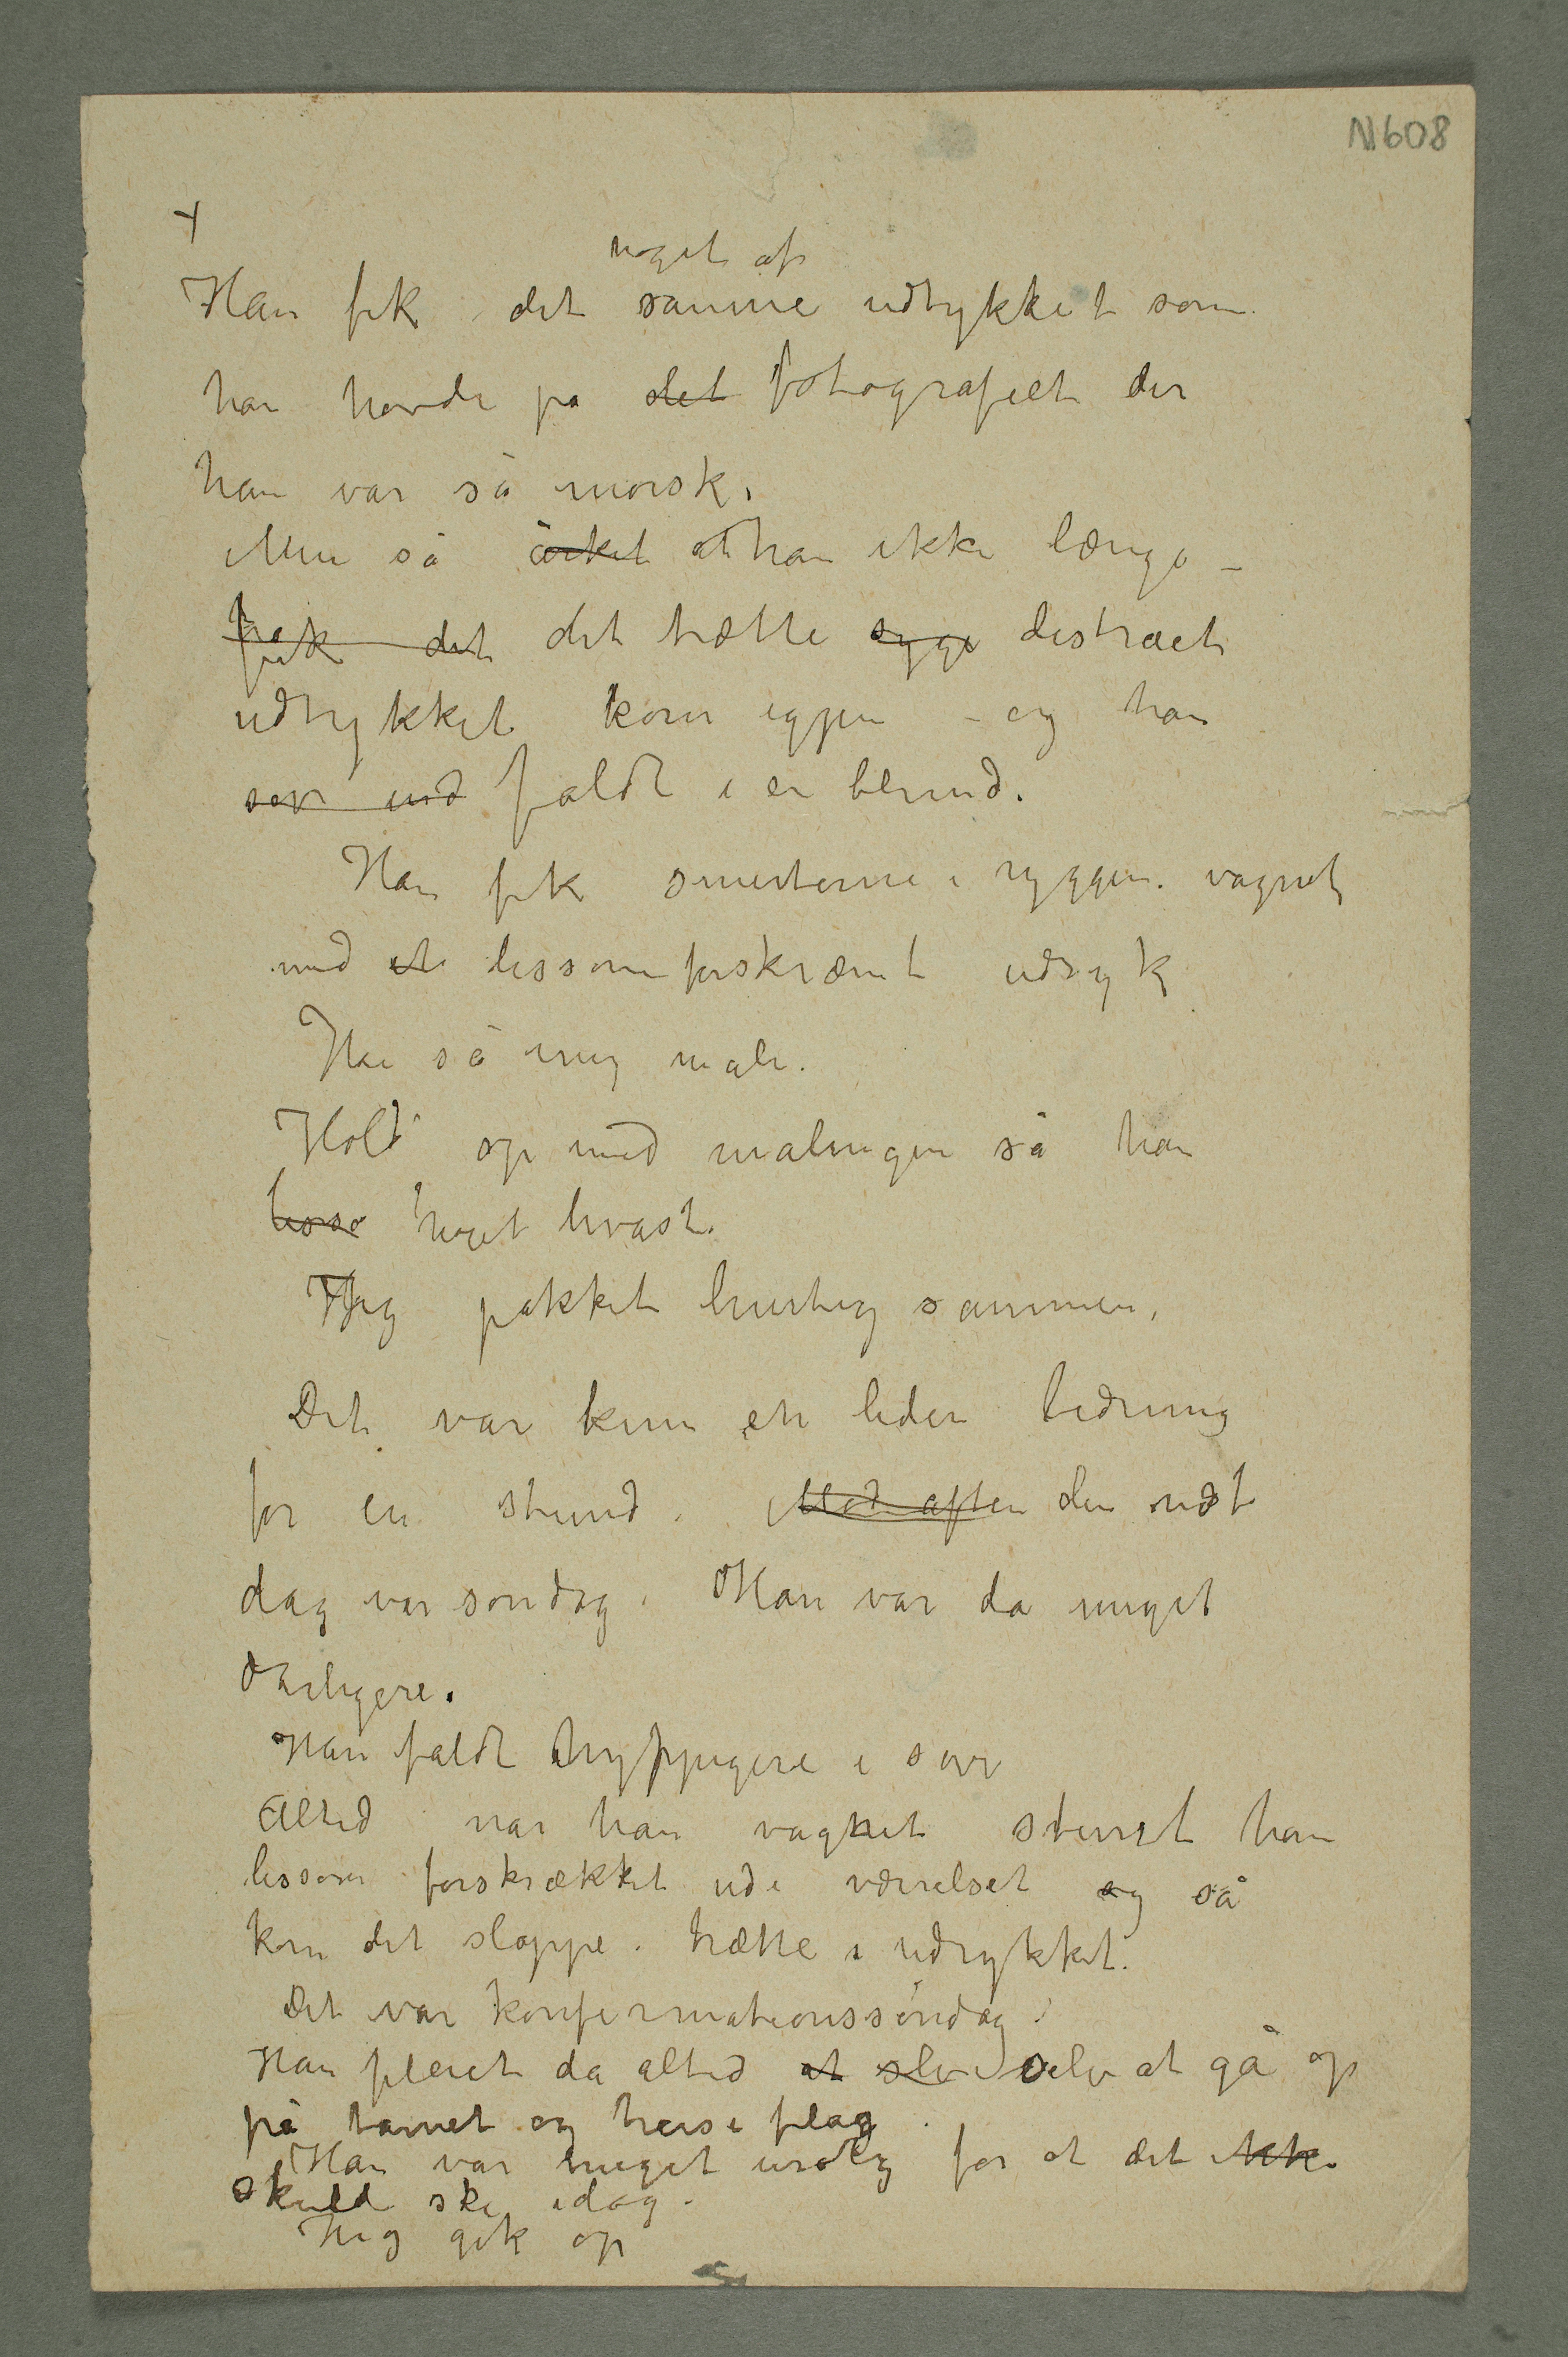 N608
+
noget af
Han fik det samme udtykket som
han havde på det fotografiet der
han var så morsk.
Men så orket at han ikke længe –
fik det det trætte syge distraet
udtrykket kom igjen – og han
sov ind faldt i en blund.
Han fik smerterne i ryggen. vagnet
med et lissom forskræmt udtryk
Han så mig male.
Hold op med malingen så han
lisso noget hvast.
Jeg pakket hurtig sammen.
Det var kun en liden bedring
for en stund. Mod aften den næst
dag var søndag. Han var da meget
dårligere.
Han faldt hyppigere i søvn
Altid når han vagnet stirret han
lissom forskrækket ud i værelset og så
kom det slappe. trætte i udtrykket.
Det var konfirmationssøndag.
Han pleiet da altid at slv selv at gå op
på tarnet og heise flag.
Han var meget urolig for at det ikke
skulde ske idag.
Jeg gik op